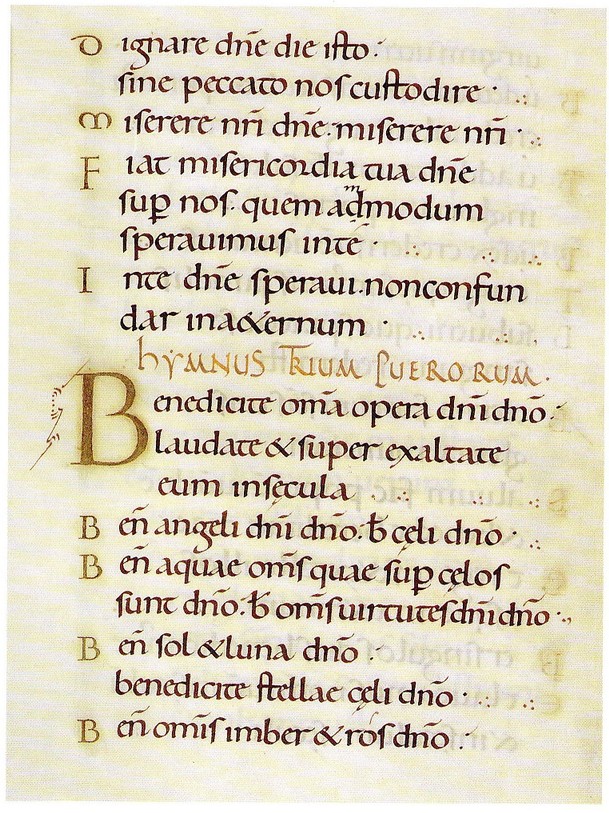 Dignare dñe die isto.
sine peccato nos custodire.
Miserere nr̄i dñe. miserere nr̄i.
Fiat misericordia tua dñe
sup̱ nos. quem admmodum
sperauimus in te.
In te dñe speraui. non confun
dar in a&ernum.
HYMNUS TRIUM PUERORUM.
Benedicite om̄a opera dn̄i dño.
laudate & super exaltate
eum in sęcula
Ben̄ angeli dn̄i dño. b̄ cęli dño.
Ben̄ aquae om̄s quae sup̱ cęlos
sunt dño. b̄ om̄s uirtutes dn̄i dño.
Ben̄ sol & luna dño.
benedicite stellae cęli dño.
Ben̄ omīs imber & ros dño.